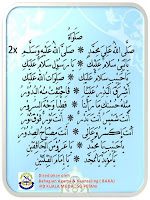 صلوات
2x صلى الله على محمد * صلى الله عليه وسلم
يا نبي سلام عليك * يا رسول سلام عليك
يا حبيب سلام عليك * صلوات الله عليك
أشرق البدر علينا * فاختفت منه البدور
مثل حسنك ما رأينا * قط يا وجه السرور
أنت شمس أنت بدر * أنت نور فوق نور
أنت إكسير وغالي * أنت مصباح الصدور
يا حبيبي يا محمد * يا عروس الخافقين
يا مؤيد يا ممجد * يا إمام القبلتين
Disediakan oleh:
Bahagian Agama & Kaunseling
KUALA MUDA, SG PETANI